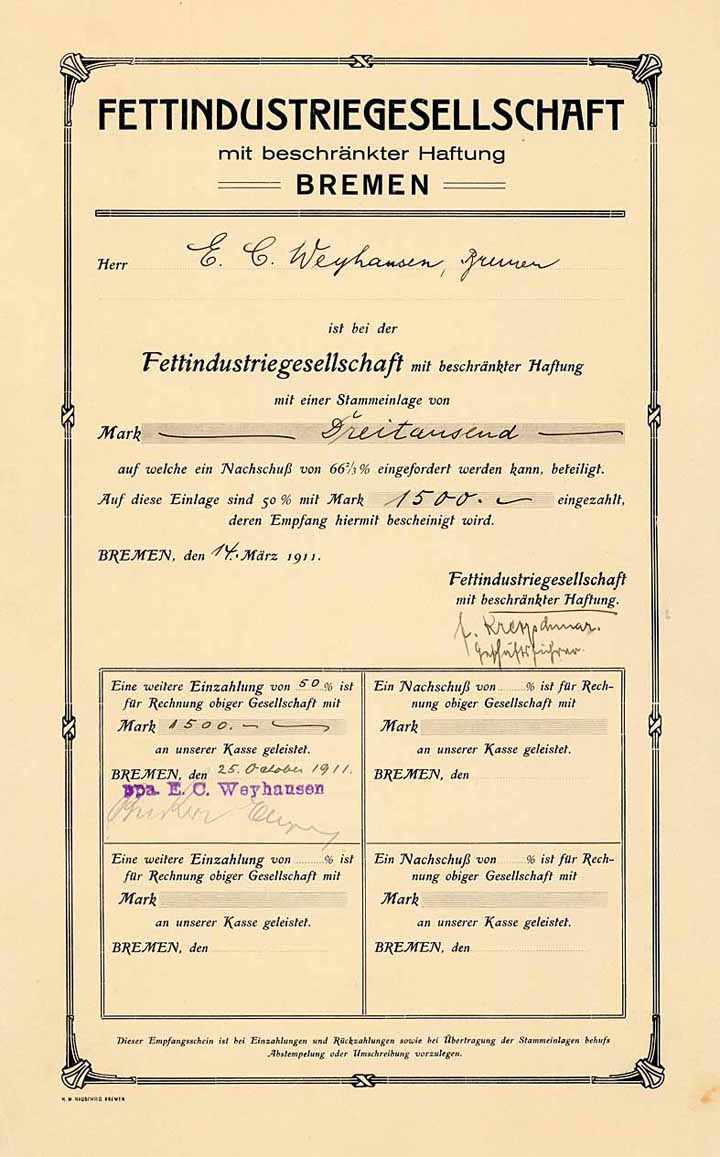 FETTINDUSTRIEGESELLSCHAFT
mit beschränkter Haftung
BREMEN
Herr E. C. Weyhausen, Bremen
ist bei der
Fettindustriegesellschaft mit beschränkter Haftung
mit einer Stammeinlage von
Mark Dreitausend
auf welche ein Nachschuß von 66⅔% eingefordert werden kann, beteiligt.
Auf diese Einlage sind 50% mit Mark 1500.— eingezahlt,
deren Empfang hiermit bescheinigt wird.
BREMEN, den 14. März 1911.
Fettindustriegesellschaft
mit beschränkter Haftung.
Geschäftsführer.
Eine weitere Einzahlung von 50 % ist
für Rechnung obiger Gesellschaft mit
Mark 1500.—
an unserer Kasse geleistet.
BREMEN, den 25. October 1911.
ppa. E. C. Weyhausen
Ein Nachschuß von % ist für Rech-
nung obiger Gesellschaft mit
Mark
an unserer Kasse geleistet.
BREMEN, den
Eine weitere Einzahlung von % ist
für Rechnung obiger Gesellschaft mit
Mark
an unserer Kasse geleistet.
BREMEN, den
Ein Nachschuß von % ist für Rech-
nung obiger Gesellschaft mit
Mark
an unserer Kasse geleistet.
BREMEN, den
Dieser Empfangsschein ist bei Einzahlungen und Rückzahlungen sowie bei Übertragung der Stammeinlagen behufs
Abstempelung oder Umschreibung vorzulegen.
H. M. HAUSCHILD, BREMEN